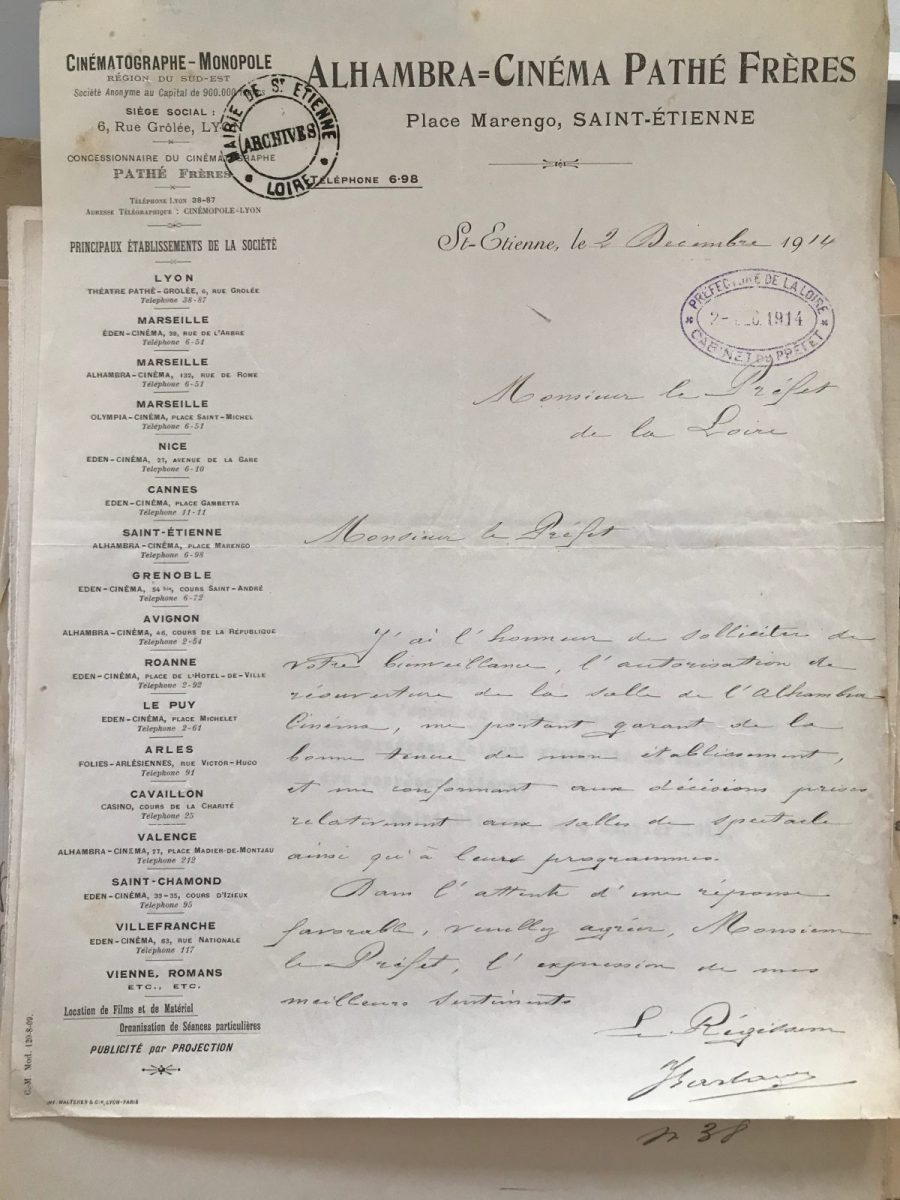 CINÉMATOGRAPHE-MONOPOLE
RÉGION DU SUD-EST
Société Anonyme au Capital de 900.000
SIÈGE SOCIAL :
6, Rue Grôlée, LYON
CONCESSIONNAIRE DU CINÉMATOGRAPHE
PATHÉ FRÈRES
TÉLÉPHONE LYON 38-87
ADRESSE TÉLÉGRAPHIQUE : CINÉMOPOLE-LYON
MAIRIE DE ST ETIENNE
ARCHIVES
LOIRE
ALHAMBRA=CINÉMA PATHÉ FRÈRES
Place Marengo, SAINT-ÉTIENNE
TÉLÉPHONE 6-98
PRINCIPAUX ÉTABLISSEMENTS DE LA SOCIÉTÉ
LYON
THÉATRE PATHÉ-GROLÉE, 6, RUE GROLÉE
Téléphone 38-87
MARSEILLE
EDEN-CINÉMA, 39, RUE DE L'ARBRE
Téléphone 6-51
MARSEILLE
ALHAMBRA-CINÉMA, 132, RUE DE ROME
Téléphone 6-51
MARSEILLE
OLYMPIA-CINÉMA, PLACE SAINT-MICHEL
Téléphone 6-51
NICE
EDEN-CINÉMA, 27, AVENUE DE LA GARE
Téléphone 6-10
CANNES
EDEN-CINÉMA, PLACE GAMBETTA
Téléphone 11-11
SAINT-ÉTIENNE
ALHAMBRA-CINÉMA, PLACE MARENGO
Téléphone 6-98
GRENOBLE
EDEN-CINÉMA, 54 bis, COURS SAINT-ANDRÉ
Téléphone 6-72
AVIGNON
ALHAMBRA-CINÉMA, 46, COURS DE LA RÉPUBLIQUE
Téléphone 2-54
ROANNE
EDEN-CINÉMA, PLACE DE L'HOTEL-DE-VILLE
Téléphone 2-92
LE PUY
EDEN-CINÉMA, PLACE MICHELET
Téléphone 2-61
ARLES
FOLIES-ARLÉSIENNES, RUE VICTOR-HUGO
Téléphone 91
CAVAILLON
CASINO, COURS DE LA CHARITÉ
Téléphone 25
VALENCE
ALHAMBRA-CINÉMA, 27, PLACE MADIER-DE-MONTJAU
Téléphone 212
SAINT-CHAMOND
EDEN-CINÉMA, 33-35, COURS D'IZIEUX
Téléphone 95
VILLEFRANCHE
EDEN-CINÉMA, 63, RUE NATIONALE
Téléphone 117
VIENNE, ROMANS
ETC., ETC.
Location de Films et de Matériel
Organisation de Séances particulières
PUBLICITÉ par PROJECTION
C.-M. Mod. 120-8-09.
IMP. WALTENER & Cie, LYON-PARIS
St-Etienne, le 2 Décembre 1914
PRÉFECTURE DE LA LOIRE
2 - DEC. 1914
CABINET DU PRÉFET
Monsieur le Préfet
de la Loire
Monsieur le Préfet
J'ai l'honneur de solliciter de
votre bienveillance, l'autorisation de
réouverture de la salle de l'Alhambra
Cinéma, me portant garant de la
bonne tenue de mon établissement,
et me conformant aux décisions prises
relativement aux salles de spectacle
ainsi qu'à leurs programmes.
Dans l'attente d'une réponse
favorable, veuillez agréer, Monsieur
le Préfet, l'expression de mes
meilleurs sentiments
Le Régisseur
n 38